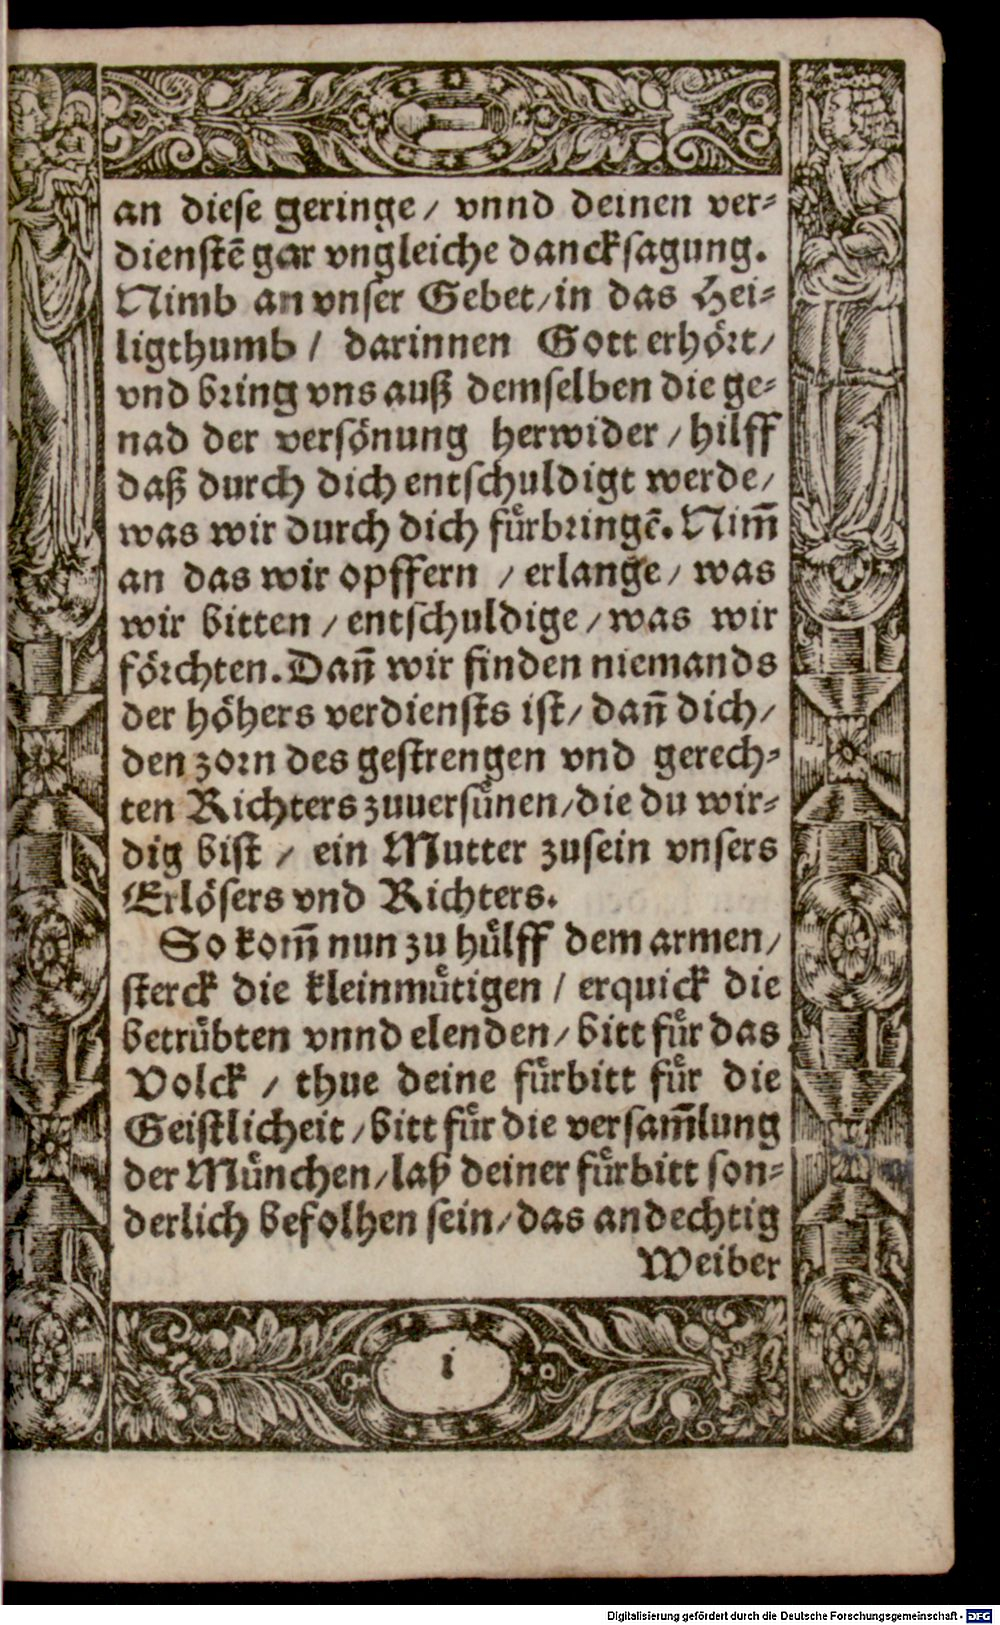 an diese geringe / vnnd deinen ver⸗
dienstẽ gar vngleiche dancksagung.
Nimb an vnser Gebet / in das Hei⸗
ligthumb / darinnen Gott erhoͤrt /
vnd bring vns auß demselben die ge⸗
nad der versoͤnung herwider / hilff
daß durch dich entschuldigt werde /
was wir durch dich fuͤrbringẽ. Nim̃
an das wir opffern / erlange / was
wir bitten / entschuldige / was wir
foͤrchten. Dañ wir finden niemands
der hoͤhers verdiensts ist / dañ dich /
den zorn des gestrengen vnd gerech⸗
ten Richters zuuersuͤnen / die du wir⸗
dig bist / ein Mutter zusein vnsers
Erloͤsers vnd Richters.
So kom̃ nun zu huͤlff dem armen /
sterck die kleinmuͤtigen / erquick die
betruͤbten vnnd elenden / bitt fuͤr das
Volck / thue deine fuͤrbitt fuͤr die
Geistlicheit / bitt fuͤr die versam̃lung
der Muͤnchen / laß deiner fuͤrbitt son⸗
derlich befolhen sein / das andechtig
Weiber
i
Digitalisierung gefördert durch die Deutsche Forschungsgemeinschaft - DFG